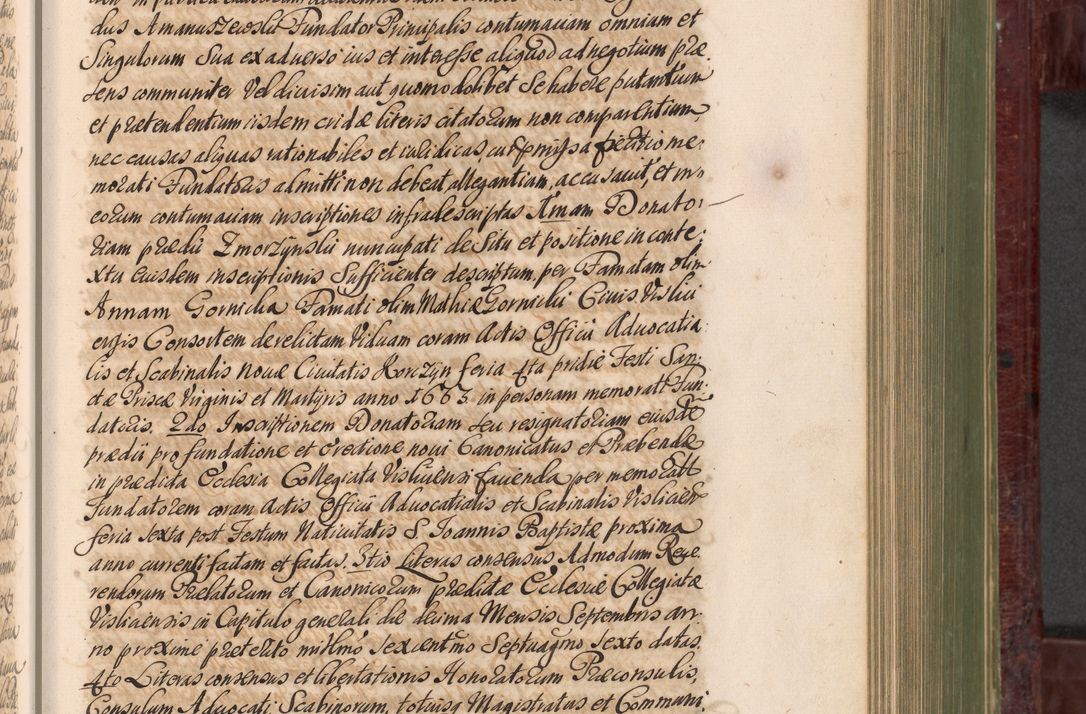 dus Amanuszewski Fundator Principalis contumaciam omnium et
Singulorum Sua ex adverso ius et interesse aliquod ad negotium præ
sens communiter Vel divisim aut quomodolibet Se habere putantium
et prætendentium iisdem cridæ literis citatorum non comparentium,
nec causas aliquas rationabiles et iuridicas, cur præmissa petitio me-
morati Fundatoris admitti non debeat allegantiam, accusavit, et in
eorum contumaciam inscriptiones infradescriptas 1mam Donator
riam prædii Zmorzynskii nuncupati de Situ et positione in conte-
xtu eiusdem inscriptionis Sufficienter descriptum, per Famatam olim
Annam Gornicka Famati olim Mathiæ Gornickii Civis Vislici
ensis Consortem derelictam Viduam coram Actis Officii Advocatia-
lis et Scabinalis Novæ Civitatis Korczyn feria 4ta pridiæ Festi San-
ctæ Priscæ Virginis et Martyris anno 1665 in personam memorati Fun-
datoris. 2do Inscriptionem Donatoriam seu resignatoriam eiusdē
prædii pro fundatione et erectione novi Canonicatus et Præbendæ
in prædicta Ecclesia Collegiata Visliciensi facienda per memoratū
Fundatorem coram Actis Officii Advocatialis et Scabinalis Vislicien
feria sexta post Festum Nativitatis S. Joannis Baptistæ proxima
anno currenti factam et factas. 3tio Literas consensus Admodum Reve-
rendorum Prælatorum et Canonicorum prædictæ Ecclesiæ Collegiatæ
Visliciensis in Capitulo generali die decima Mensis Septembris an-
no proxime præterito millmō sexcentmō Septuagmō sexto datas.
4to Literas consensus et libertationis Honoratorum Præconsulis,
Consulum Advocati Scabinorum, totiusq Magistratus et Communi-